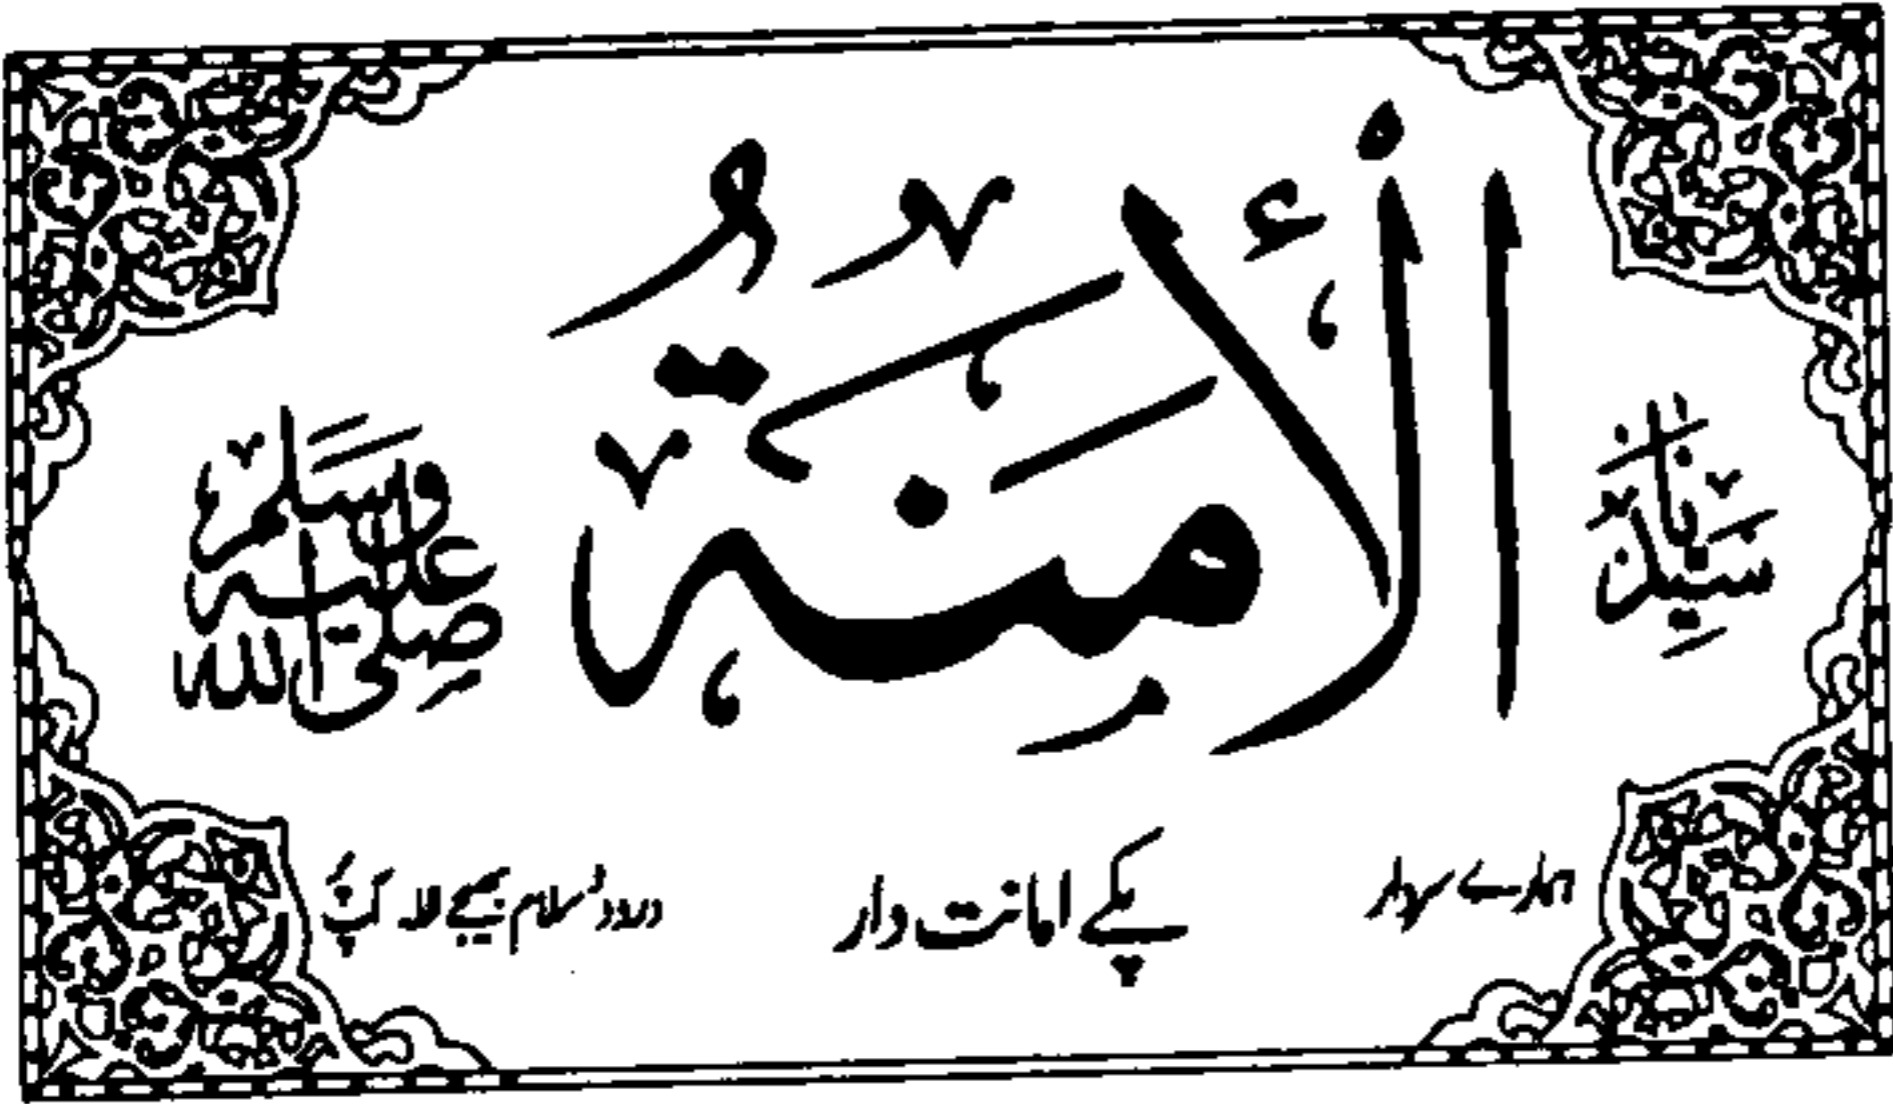 سَيِّدُنَا الْأَمَنَةُ صَلَّى اللهُ عَلَيْهِ وَسَلَّمَ
ہمارے سردار پکے امانت دار درود و سلام بھیجے اللہ آپ پر